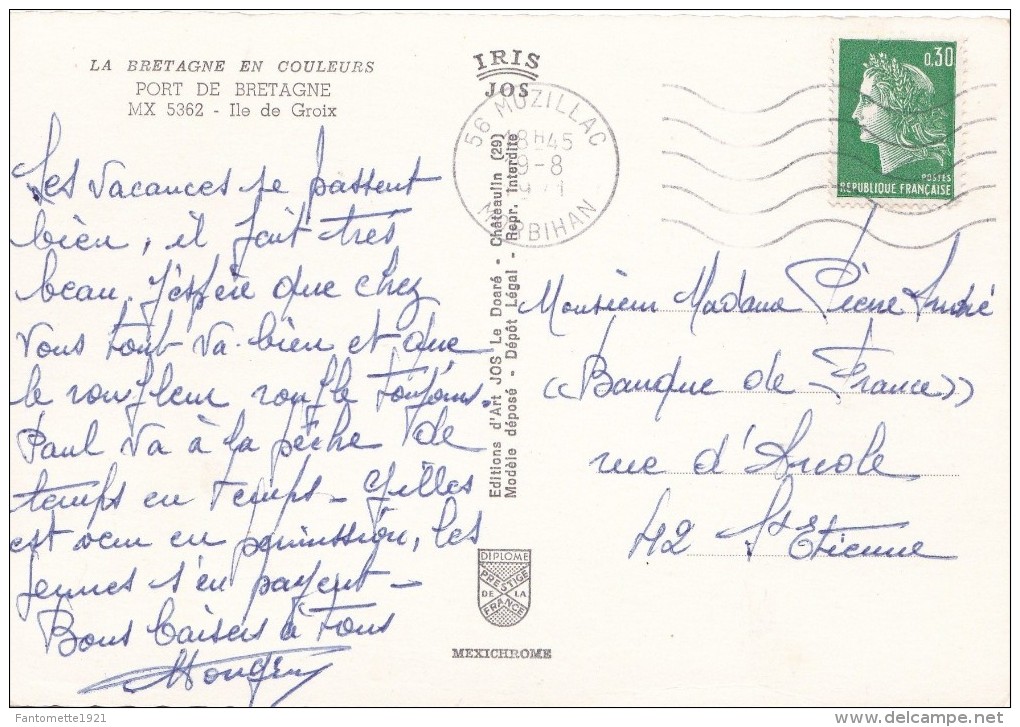 LA BRETAGNE EN COULEURS
PORT DE BRETAGNE
MX 5362 - Ile de Groix
IRIS
JOS
56 MUZILLAC
18H45
9-8
1971
MORBIHAN
0,30
POSTES
REPUBLIQUE FRANÇAISE
Les vacances se passent
bien, il fait très
beau. J'espère que chez
vous tout va bien et que
le ronfleur ronfle toujours.
Paul va à la pêche de
temps en temps - Gilles
est venu en permission, les
jeunes s'en payent -
Bons baisers à tous
Editions d'Art JOS Le Doaré - Châteaulin (29)
Modèle déposé - Dépôt Légal - Repr. Interdite
Monsieur Madame Pierre André
((Banque de France))
rue d'Arcole
42 St Etienne
DIPLOME
PRESTIGE
DE LA
FRANCE
MEXICHROME
Fantomette1921
delcampe.net